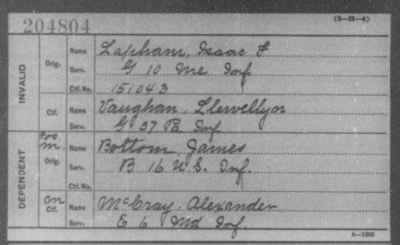 204804
(3-28-4)
INVALID
Orig. Name Lapham, Isaac F
Serv. G 10 Me Inf
Ctf. No. 151043
Ctf. Name Vaughan, Llewellyn
Serv. G 37 Inf
DEPENDENT
Orig. Name Bottom, James
Serv. B 16 U.S. Inf.
Ctf. No.
Ctf. Name McCray, Alexander
Serv. E 6 Md Inf.